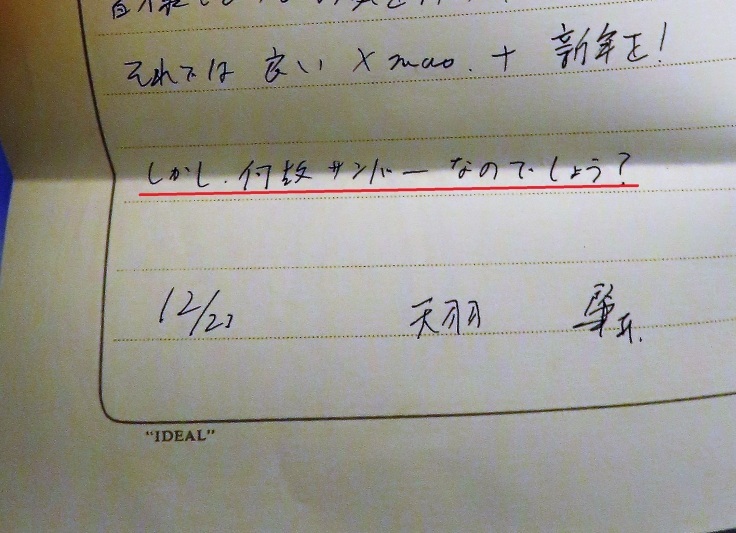 それでは 良い Xmas. + 新年を!
しかし. 何故サンバーなのでしょう?
12/23 天羽
"IDEAL"